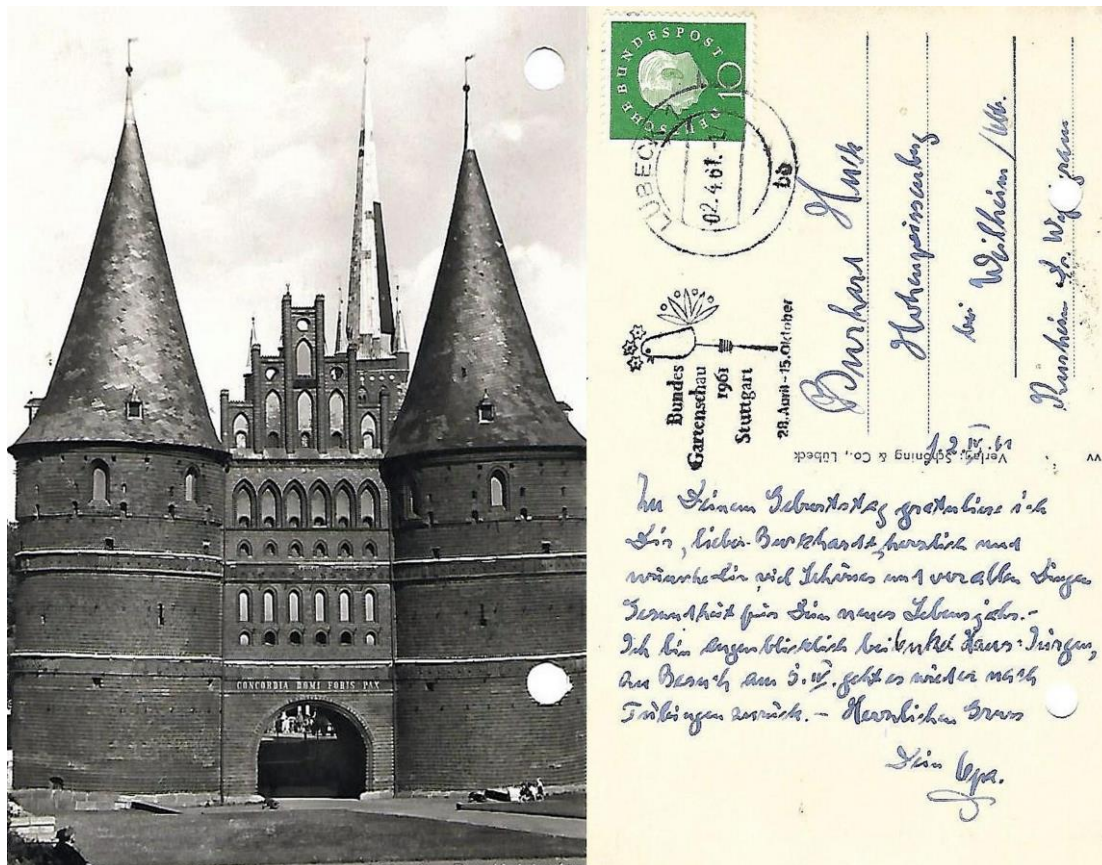 CONCORDIA DOMI FORIS PAX
DEUTSCHE BUNDESPOST
10
LÜBECK
02.4.61.
bb
Bundes
Gartenschau
1961
Stuttgart
28. April - 15. Oktober
Hohenpeissenberg
bei Weilheim / Obb.
Verlag: Schöning & Co., Lübeck
Zu Deinem Geburtstag gratuliere ich
Dir, lieber Burkhardt, herzlich und
wünsche dir viel Schönes und vor allen Dingen
Gesundheit für Dein neues Lebensjahr. -
Ich bin augenblicklich bei Onkel Hans-Jürgen,
zu Besuch am 5. IV. geht es wieder nach
Tübingen zurück. - Herzlichen Gruss
Dein Opa.